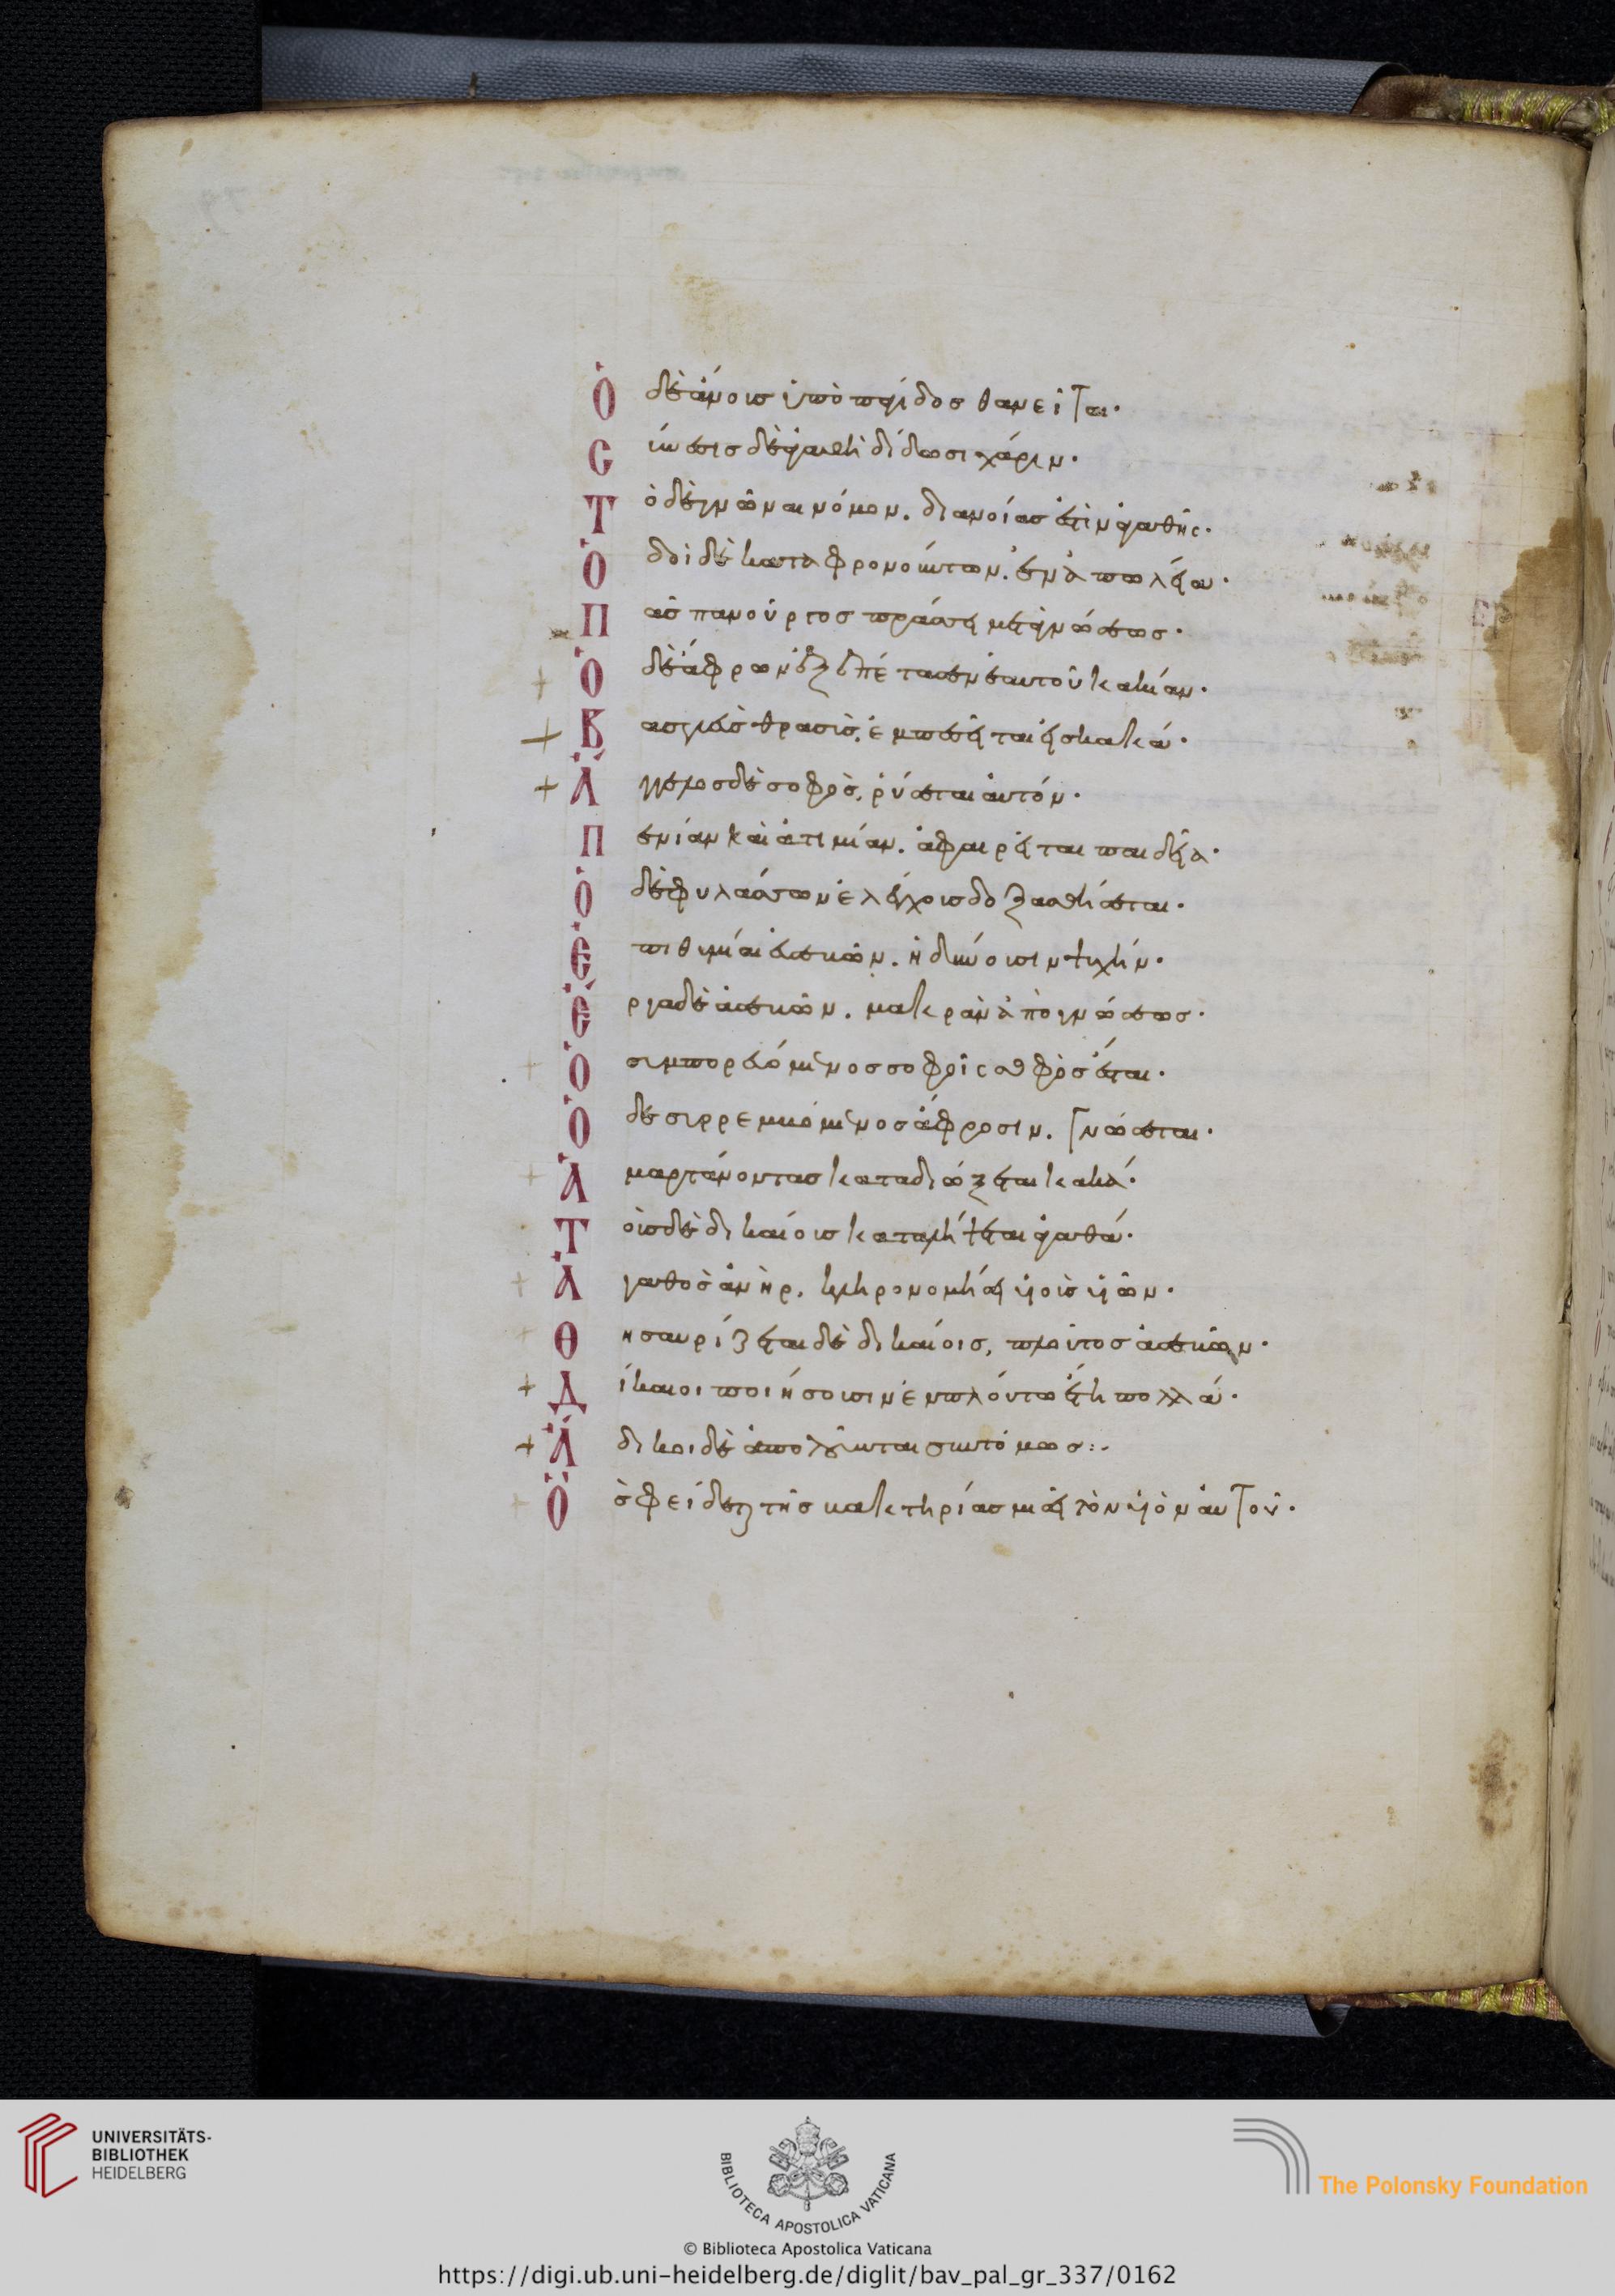 Ὁ δὲ ἄνους ὑπὸ παγίδος θανεῖται·
Σύνεσις δὲ ἀγαθὴ δίδωσι χάριν·
Τὸ δὲ γνῶναι νόμον. διανοίας ἐστὶν ἀγαθῆς·
Ὁδοὶ δὲ καταφρονούντων. ἐν ἀπωλεία·
Πᾶς πανοῦργος πράσσει μετὰ γνώσεως·
Ὁ δὲ ἄφρων ἐξεπέτασεν ἑαυτοῦ κακίαν·
Βασιλεὺς θρασὺς. ἐμπεσεῖται εἰς κακά·
Ἄγγελος δὲ σοφὸς. ῥύσεται αὐτόν·
Πενίαν καὶ ἀτιμίαν. ἀφαιρεῖται παιδεία·
Ὁ δὲ φυλάσσων ἐλέγχους δοξασθήσεται·
Ἐπιθυμίαι εὐσεβῶν. ἡδύνουσιν ψυχήν·
Ἔργα δὲ ἀσεβῶν. μακρὰν ἀπὸ γνώσεως·
Ὁ συμπορευόμενος σοφοῖς σοφὸς ἔσται·
Ὁ δὲ συρρεμβόμενος ἄφροσιν. γνώσεται·
Ἁμαρτάνοντας καταδιώξεται κακά·
Τοὺς δὲ δικαίους καταλήψεται ἀγαθά·
Ἀγαθὸς ἀνὴρ. κληρονομήσει υἱοὺς υἱῶν·
Θησαυρίζεται δὲ δικαίοις, πλοῦτος ἀσεβῶν·
Δίκαιοι ποιήσουσιν ἐν πλούτω ἔτη πολλά·
Ἄδικοι δὲ ἀπολοῦνται συντόμως:·
Ὃς φείδεται τῆς βακτηρίας μισεῖ τὸν υἱὸν αὐτοῦ·
UNIVERSITÄTS-
BIBLIOTHEK
HEIDELBERG
BIBLIOTECA APOSTOLICA VATICANA
The Polonsky Foundation
© Biblioteca Apostolica Vaticana
https://digi.ub.uni-heidelberg.de/diglit/bav_pal_gr_337/0162